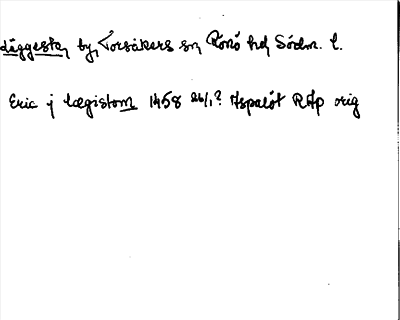 Läggesta, by, Torsåkers sn, Rönö hd, Södm. l.
Eric j Lægistom 1458 26/1? Aspalöt RAp orig